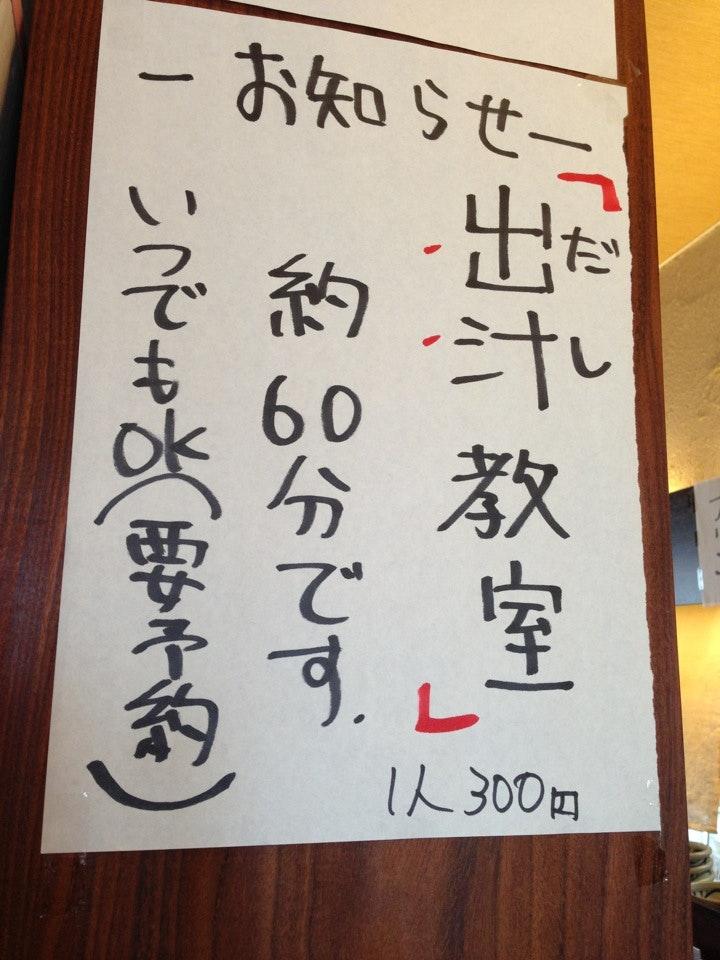 ーお知らせー
「出汁教室」
だし
1人300円
約60分です.
いつでもOK(要予約)